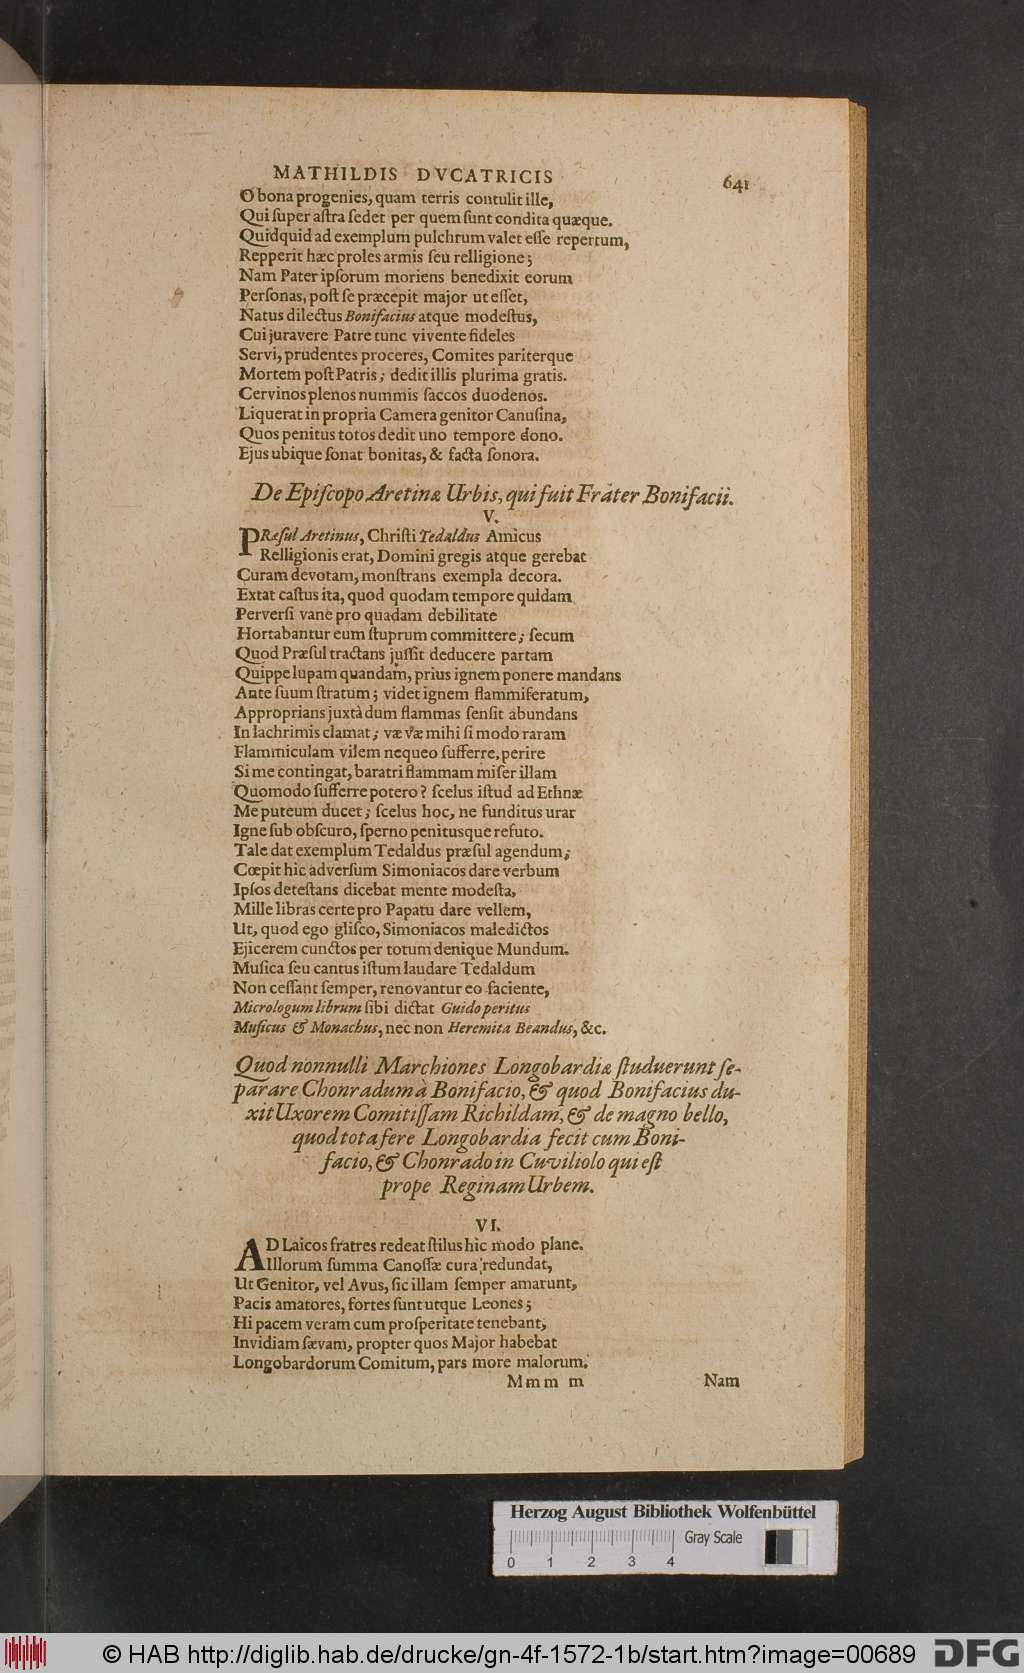 MATHILDIS DVCATRICIS 641
O bona progenies, quam terris contulit ille,
Qui ſuper aſtra ſedet per quem ſunt condita quæque.
Quidquid ad exemplum pulchrum valet eſſe repertum,
Repperit hæc proles armis ſeu relligione;
Nam Pater ipſorum moriens benedixit eorum
Perſonas, poſt ſe præcepit major ut eſſet,
Natus dilectus Bonifacius atque modeſtus,
Cui juravere Patre tunc vivente fideles
Servi, prudentes proceres, Comites pariterque
Mortem poſt Patris; dedit illis plurima gratis.
Cervinos plenos nummis ſaccos duodenos.
Liquerat in propria Camera genitor Canuſina,
Quos penitus totos dedit uno tempore dono.
Ejus ubique ſonat bonitas, & facta ſonora.
De Epiſcopo Aretinæ Urbis, qui fuit Frater Bonifacii.
V.
PRæſul Aretinus, Chriſti Tedaldus Amicus
Relligionis erat, Domini gregis atque gerebat
Curam devotam, monſtrans exempla decora.
Extat caſtus ita, quod quodam tempore quidam
Perverſi vane pro quadam debilitate
Hortabantur eum ſtuprum committere; ſecum
Quod Præſul tractans juſſit deducere partam
Quippe lupam quandam, prius ignem ponere mandans
Ante ſuum ſtratum; videt ignem flammiferatum,
Approprians juxtà dum flammas ſenſit abundans
In lachrimis clamat; væ væ mihi ſi modo raram
Flammiculam vilem nequeo ſufferre, perire
Si me contingat, baratri flammam miſer illam
Quomodo ſufferre potero? ſcelus iſtud ad Ethnæ
Me puteum ducet; ſcelus hoc, ne funditus urar
Igne ſub obſcuro, ſperno penitusque refuto.
Tale dat exemplum Tedaldus præſul agendum;
Cœpit hic adverſum Simoniacos dare verbum
Ipſos deteſtans dicebat mente modeſta,
Mille libras certe pro Papatu dare vellem,
Ut, quod ego gliſco, Simoniacos maledictos
Ejicerem cunctos per totum denique Mundum.
Muſica ſeu cantus iſtum laudare Tedaldum
Non ceſſant ſemper, renovantur eo faciente,
Micrologum librum ſibi dictat Guido peritus
Muſicus & Monachus, nec non Heremita Beandus, &c.
Quod nonnulli Marchiones Longobardiæ ſtuduerunt ſe-
parare Chonradum à Bonifacio, & quod Bonifacius du-
xit Uxorem Comitiſſam Richildam, & de magno bello,
quod tota fere Longobardia fecit cum Boni-
facio, & Chonrado in Cuviliolo qui eſt
prope Reginam Urbem.
VI.
AD Laicos fratres redeat ſtilus hic modo plane.
Illorum ſumma Canoſſæ cura redundat,
Ut Genitor, vel Avus, ſic illam ſemper amarunt,
Pacis amatores, fortes ſunt utque Leones;
Hi pacem veram cum proſperitate tenebant,
Invidiam ſævam, propter quos Major habebat
Longobardorum Comitum, pars more malorum.
Mmmm Nam
Herzog August Bibliothek Wolfenbüttel
Gray Scale
0 1 2 3 4
© HAB http://diglib.hab.de/drucke/gn-4f-1572-1b/start.htm?image=00689 DFG